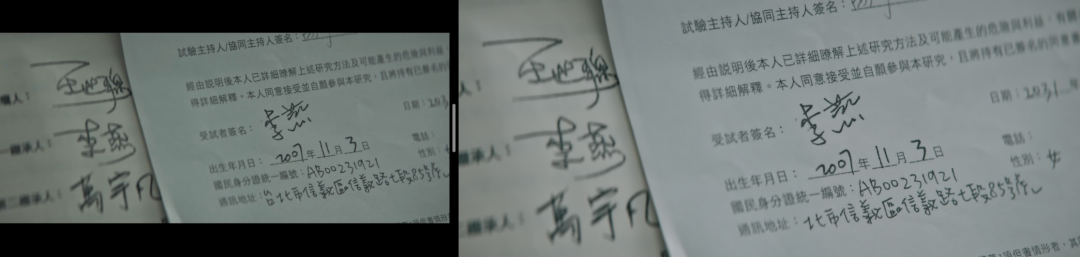 試驗主持人/協同主持人簽名：
經由説明後本人已詳細瞭解上述研究方法及可能產生的危險與利益
得詳細解釋。本人同意接受並自願參與本研究，且將持有已簽名的
日期：203
受試者簽名：李燕
出生年月日：2007年11月3日
電話：
國民身分證統一編號：AB00231921
性別：
通訊地址：台北市信義區信義路七段85號
承人：
李燕
第二繼承人：萬宇凡
試驗主持人/協同主持人簽名：
經由説明後本人已詳細瞭解上述研究方法及可能產生的危險與利益，有關
得詳細解釋。本人同意接受並自願參與本研究，且將持有已簽名的同意書
日期：2031年
受試者簽名：李燕
出生年月日：2007年11月3日
電話：
國民身分證統一編號：AB00231921
性別：女
通訊地址：北市信義區信義路七段85號
繼承人：李燕
繼承人：萬宇凡